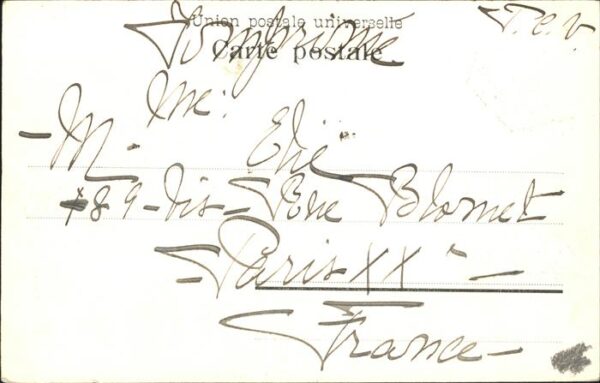 Union postale universelle
T.C.V.
Carte postale
Imprimé
Me:
-M. Elie
89-bis- Rue Blomet
-Paris XXe-
France-